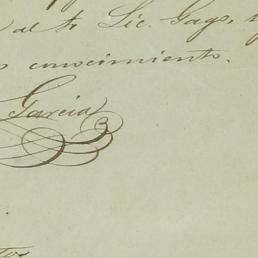 al Sr Lic. Gago, y
conocimiento.
Garcia